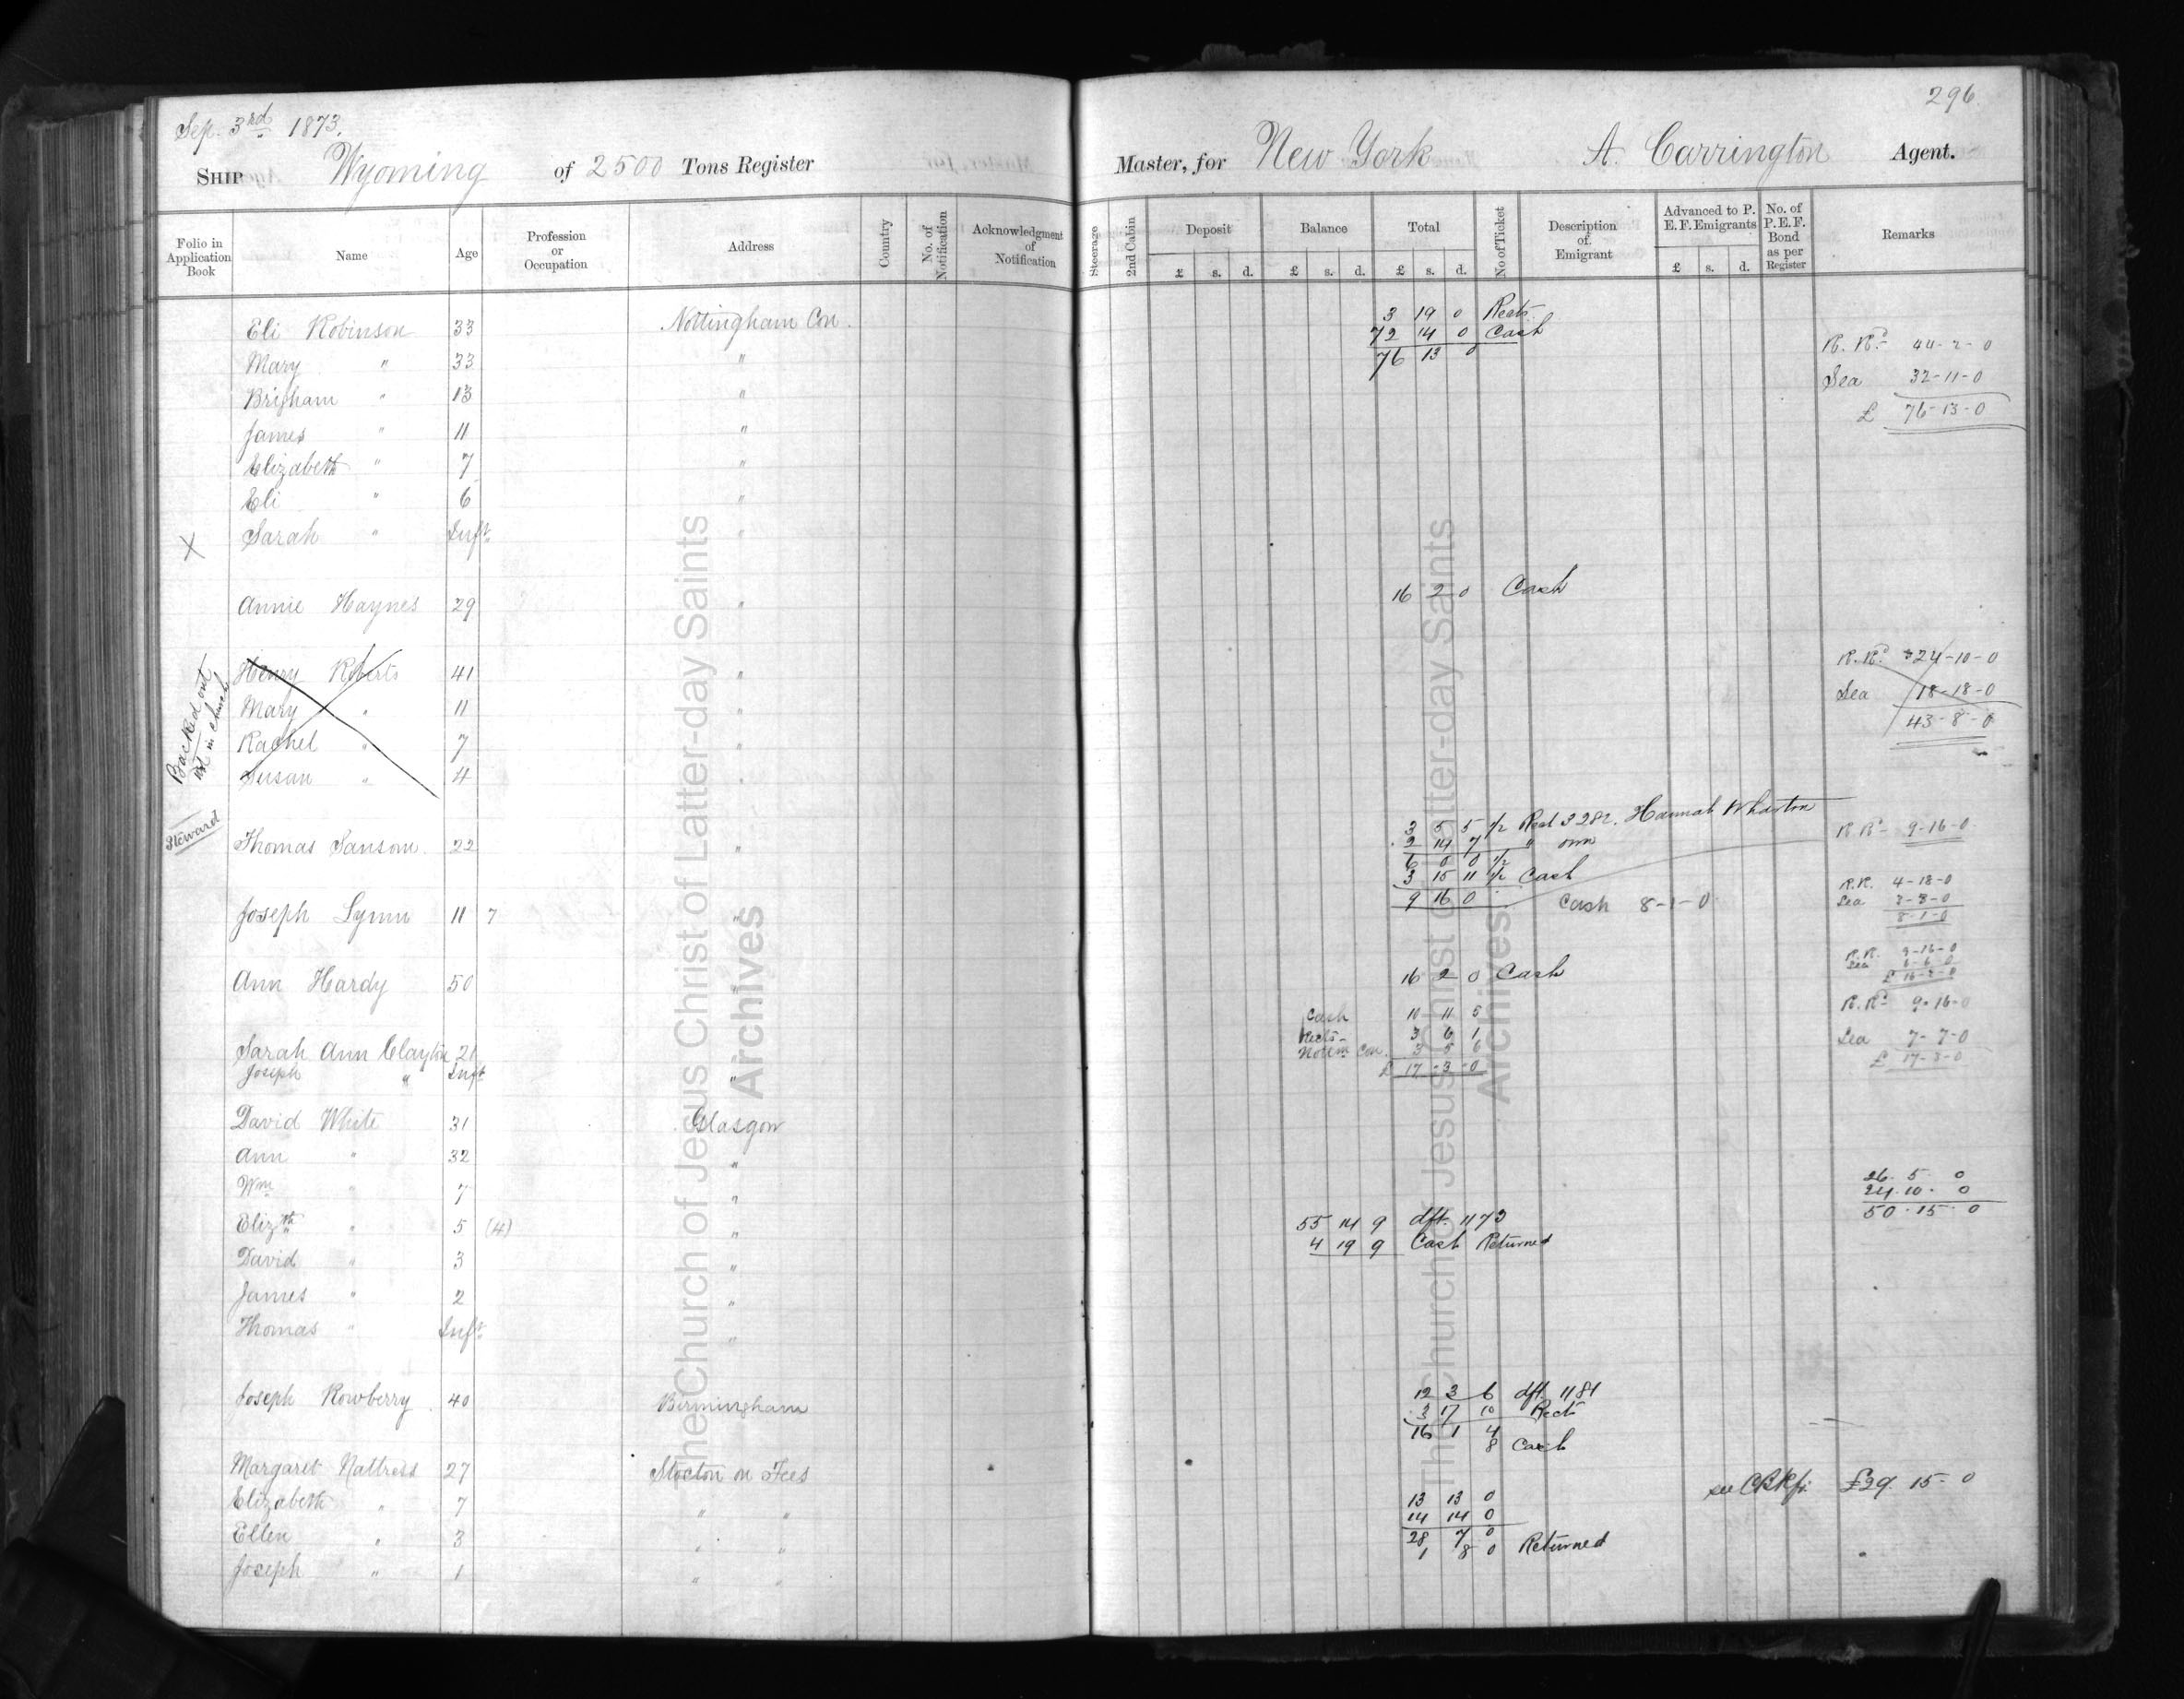 Sep. 3rd 1873.
296
Ship Wyoming of 2500 Tons Register
Master, for New York A. Carrington Agent.
Folio in Application Book
Name
Age
Profession or Occupation
Address
Country
No. of Notification
Acknowledgment of Notification
Steerage
2nd Cabin
Deposit
£ s. d.
Balance
£ s. d.
Total
£ s. d.
No of Ticket
Description of Emigrant
Advanced to P. E. F. Emigrants
£ s. d.
No. of P. E. F. Bond as per Register
Remarks
Eli Robinson 33 Nottingham Con.
Mary " 33 "
Brigham " 13 "
James " 11 "
Elizabeth " 7 "
Eli " 6 "
X Sarah " Inft. "
Annie Haynes 29 "
Backed out
not in church
Henry Roberts 41 "
Mary " 11 "
Rachel " 7 "
Susan " 4 "
Steward
Thomas Sansom 22 "
Joseph Lynn 11 7 "
Ann Hardy 50 "
Sarah Ann Clayton 21 "
Joseph " Inft "
David White 31 Glasgow
Ann " 32 "
Wm " 7 "
Elizth " 5 (4) "
David " 3 "
James " 2 "
Thomas " Inft. "
Joseph Rowberry 40 Birmingham
Margaret Nattress 27 Stocton on Tees
Elizabeth " 7 " "
Ellen " 3 " "
Joseph " 1 " "
3 19 0 Rects.
72 14 0 Cash
76 13 0
R. Rd 44-2-0
Sea 32-11-0
£ 76-13-0
16 2 0 Cash
R. Rd 24-10-0
Sea 18-18-0
43-8-0
3 5 5 1/2 Rect 3282. Hannah Wharton
2 14 7 " own
6 0 0 1/2
3 15 11 1/2 Cash
9 16 0
R Rd 9-16-0
Cash 8-1-0
R.R. 4-18-0
Sea 3-3-0
8-1-0
16 2 0 Cash
R.R. 9-16-0
Sea 6-6-0
£ 16-2-0
Cash 10 11 5
Rects- 3 6 1
Nottm Con. 3 5 6
£ 17-3-0
R. Rd 9-16-0
Sea 7-7-0
£ 17-3-0
26. 5. 0
24. 10. 0
50. 15. 0
55 14 9 dft. 1173
4 19 9 Cash Returned
12 3 6 dft. 1181
3 17 10 Rects
16 1 4
8 Cash
see £29. 15. 0
13 13 0
14 14 0
28 7 0
1 8 0 Returned
The Church of Jesus Christ of Latter-day Saints
Archives
The Church of Jesus Christ of Latter-day Saints
Archives